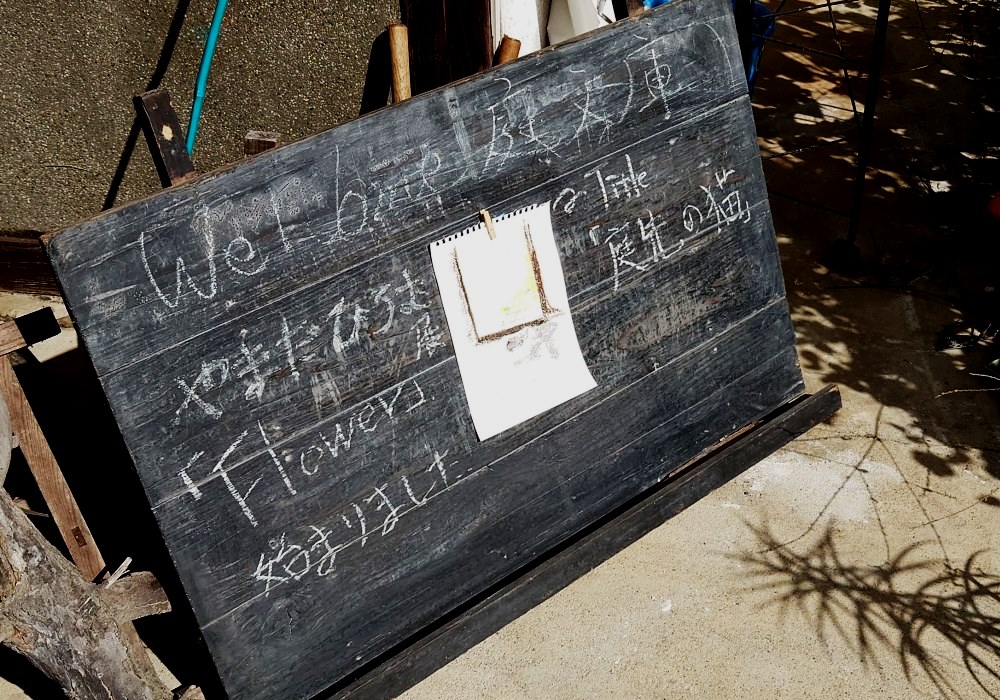 Welcome 庭文庫
やまだひろむ展
「Flowers」
始まりました
Title
「庭先の猫」